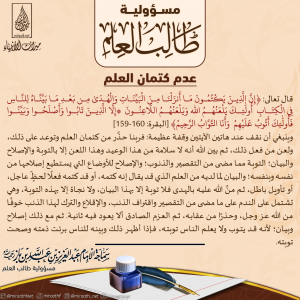 مسؤولية
طالب العلم
ميراث الأنبياء
عدم كتمان العلم
قال تعالى: ﴿إِنَّ الَّذِينَ يَكْتُمُونَ مَا أَنْزَلْنَا مِنَ الْبَيِّنَاتِ وَالْهُدَىٰ مِن بَعْدِ مَا بَيَّنَّاهُ لِلنَّاسِ
فِي الْكِتَابِ أُولَٰئِكَ يَلْعَنُهُمُ اللَّهُ وَيَلْعَنُهُمُ اللَّاعِنُونَ ۝ إِلَّا الَّذِينَ تَابُوا وَأَصْلَحُوا وَبَيَّنُوا
فَأُولَٰئِكَ أَتُوبُ عَلَيْهِمْ وَأَنَا التَّوَّابُ الرَّحِيمُ﴾ [البقرة: 160-159]
وينبغي أن نقف عند هاتين الآيتين وقفة عظيمة: فربنا حذّر من كتمان العلم وتوعد على ذلك،
ولعن من فعل ذلك، ثم بين الله أنه لا سلامة من هذا الوعيد وهذا اللعن إلا بالتوبة والإصلاح
والبيان؛ التوبة مما مضى من التقصير والذنوب؛ والإصلاح للأوضاع التي يستطيع إصلاحها من
نفسه وبنفسه؛ والبيان لما لديه من العلم الذي قد يقال إنه كتمه، أو قد كتمه فعلًا لحظٍ عاجل،
أو تأويل باطل، ثم منَّ الله عليه بالهدى فلا توبة إلا بهذا البيان، ولا نجاة إلا بهذه التوبة، وهي
تشتمل على الندم على ما مضى من التقصير واقتراف الذنب، والإقلاع والترك لهذا الذنب خوفًا
من الله عز وجل، وحذرًا من عقابه، ثم العزم الصادق ألا يعود فيه ثانية. ثم مع ذلك إصلاح
وبيان؛ لأنه قد يتوب ولا يعلم الناس توبته، فإذا أظهر ذلك وبينه للناس برئت ذمته وصحت
توبته.
سماحة الإمام عبد العزيز بن عبد الله بن باز
مسؤولية طالب العلم